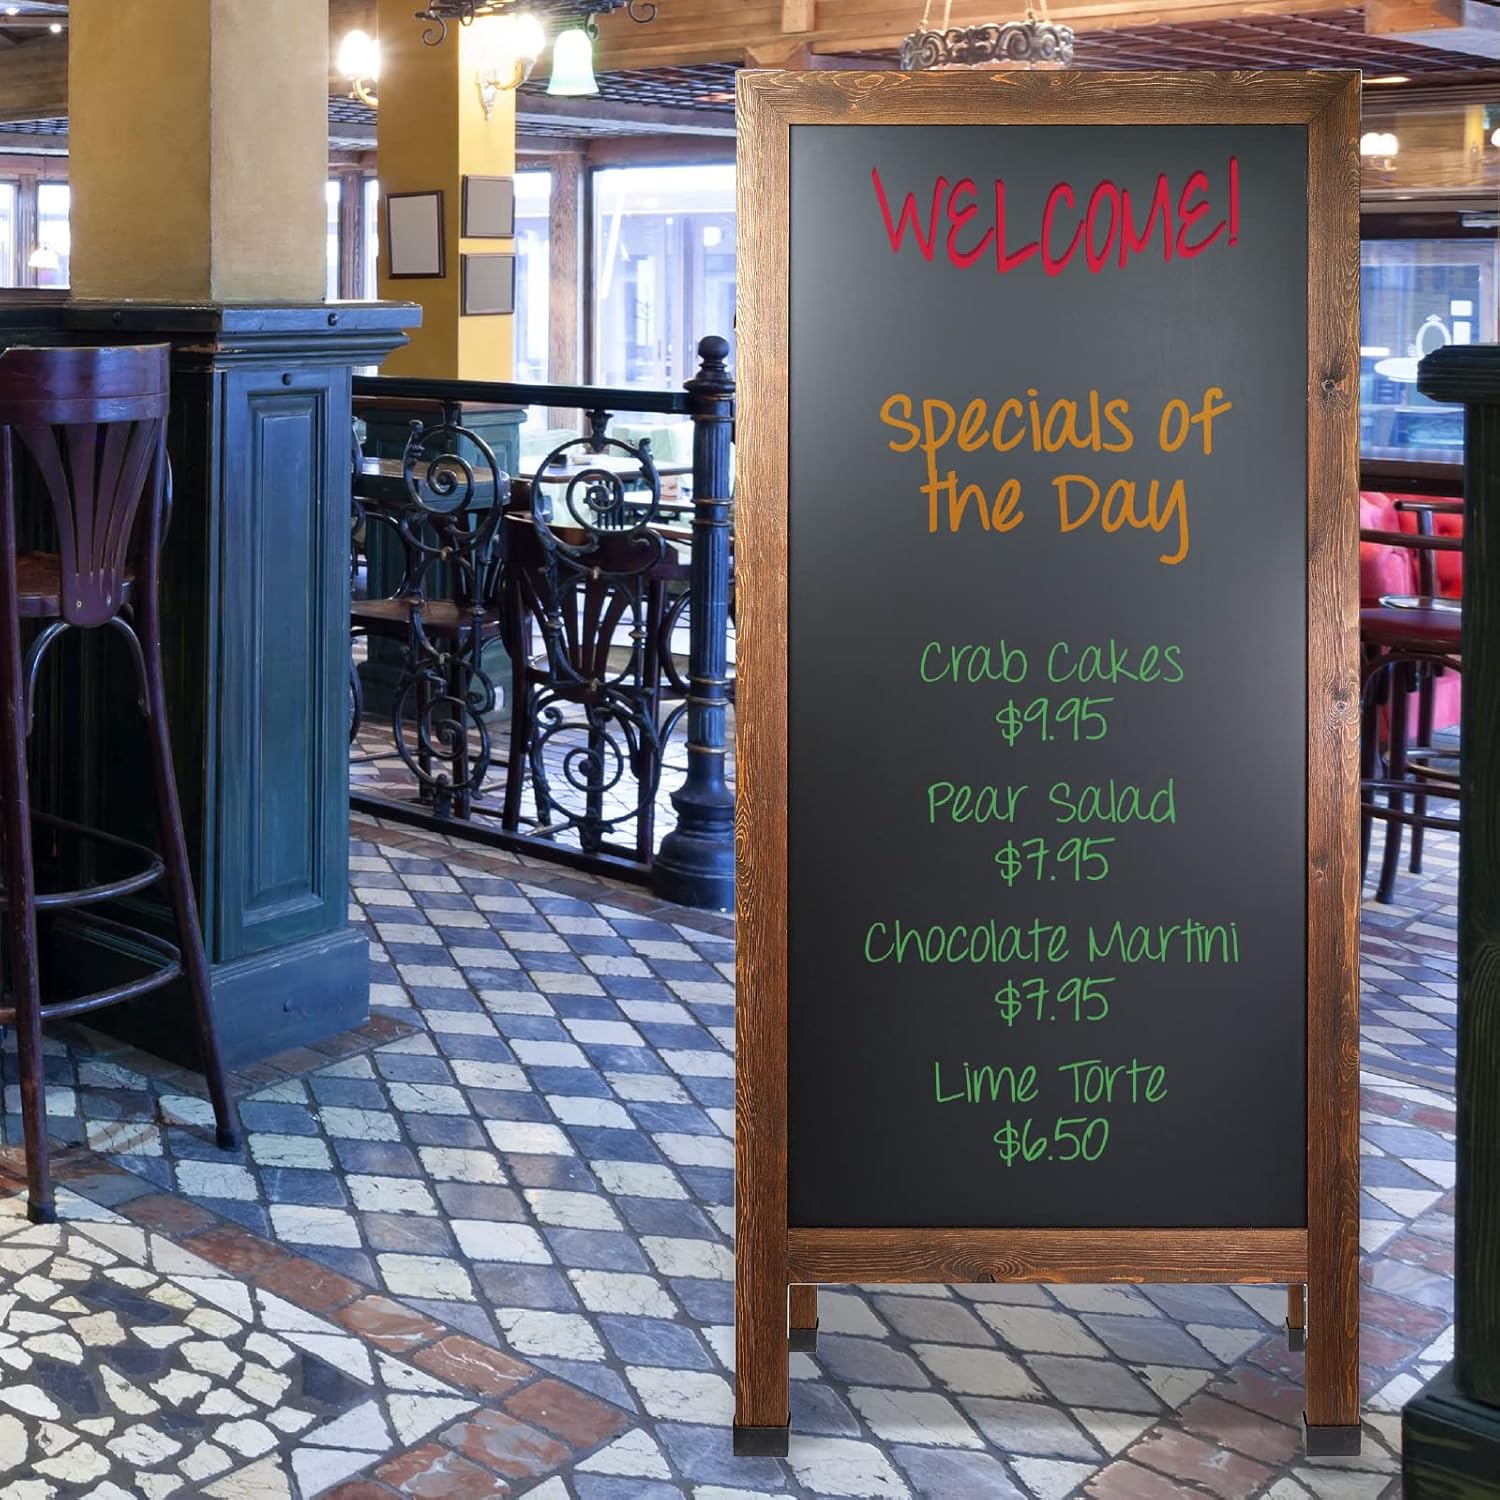 WELCOME!
Specials of
the Day
Crab Cakes
$9.95
Pear Salad
$7.95
Chocolate Martini
$7.95
Lime Torte
$6.50